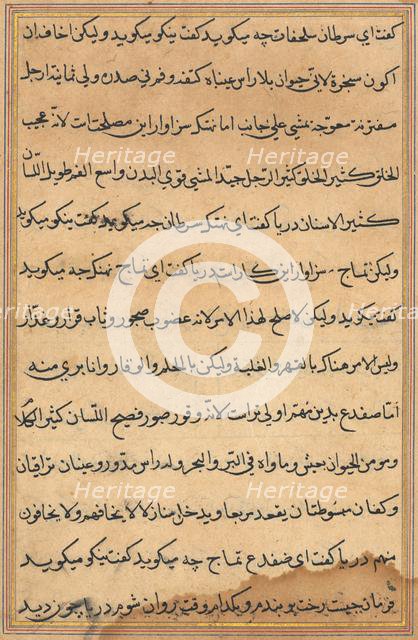 کفت ای سرطان سلحفات چه میکوید کفت نیکو میکوید ولیکن اخاف ان
اکون سخرة لانی حیوان بلا راس عیناه کتفه وفمی فی صدره ولی ثمانیة ارجل
مقترنة معوجه نمشی علی جانب اما نهنک سزاوار این مصلحتات لانه عجیب
الخلق کثیر الخلق کثیر الرجل جید المشی قوی البدن واسع الفم طویل اللسان
کثیر الاسنان دریا کفت ای نهنک سرطان چه میکوید کفت نیکو میکوید
ولیکن تماج سزاوار این کار است دریا کفت ای تماج نهنک چه میکوید
کفت نیکوید ولیکن لا اصلح لهذا الامر لانه غضوب ضجور وثاب فرار وغدار
ولیس الامر هناک بالقهر والغلبة ولیکن بالحلم والوقار وانا بری منه
اما ضفدع بدین مهم اولی تر است لانه وقور صبور فصیح اللسان کثیر الکلام
وهو من الحیوان یعیش وماواه فی البر والبحر وله راس مدور وعینان براقان
وکفان مبسوطتان یقعد مربعا ویدخل منازل لا یخافهم ولا یخافون
منهم دریا کفت ای ضفدع تماج چه میکوید کفت نیکو میکوید
فرمان چیست رخت بو بندم و بکدام وقت روان شوم دریا چون دید
Heritage
Images